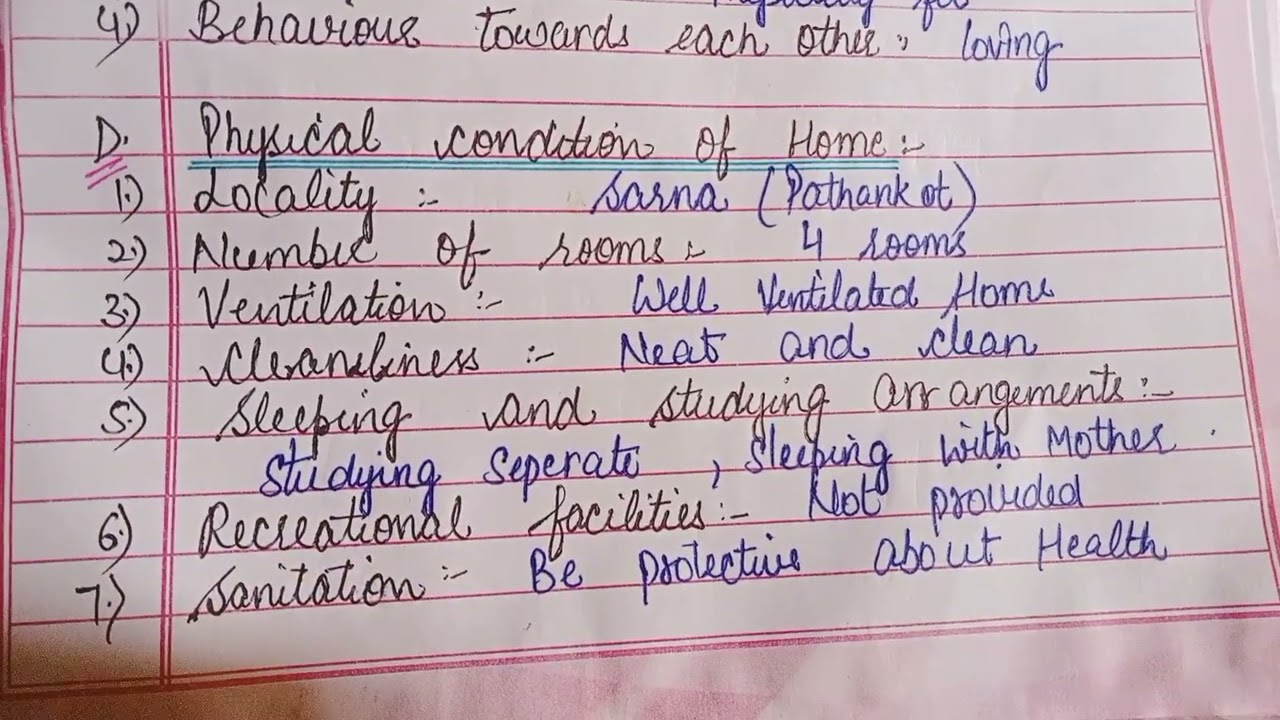 4) Behaviour towards each other :- loving
D. Physical condition of Home :-
1.) Locality :- Sarna (Pathankot)
2.) Number of rooms :- 4 rooms
3.) Ventilation :- Well Ventilated Home
4.) Cleanliness :- Neat and clean
5.) Sleeping and studying arrangements :-
Studying Seperate , Sleeping with Mother .
6.) Recreational facilities :- Not provided
7.) Sanitation :- Be protective about Health